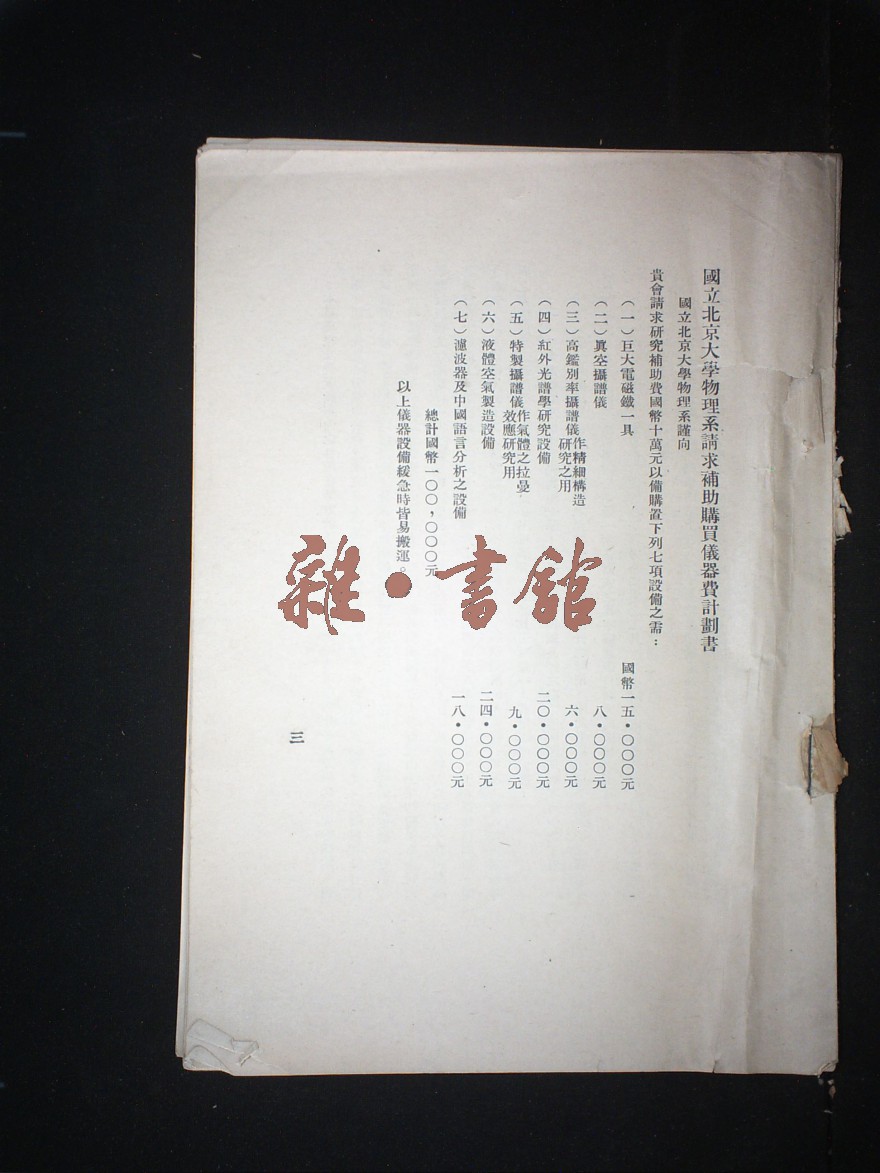 國立北京大學物理系請求補助購買儀器費計劃書
國立北京大學物理系謹向
貴會請求研究補助費國幣十萬元以備購置下列七項設備之需：
（一）巨大電磁鐵一具　國幣一五・〇〇〇元
（二）眞空攝譜儀　八・〇〇〇元
（三）高鑑別率攝譜儀作精細構造研究之用　六・〇〇〇元
（四）紅外光譜學研究設備　二〇・〇〇〇元
（五）特製攝譜儀作氣體之拉曼效應研究用　九・〇〇〇元
（六）液體空氣製造設備　二四・〇〇〇元
（七）濾波器及中國語言分析之設備　一八・〇〇〇元
總計國幣一〇〇，〇〇〇元
以上儀器設備緩急時皆易搬運。
三
雜・書館